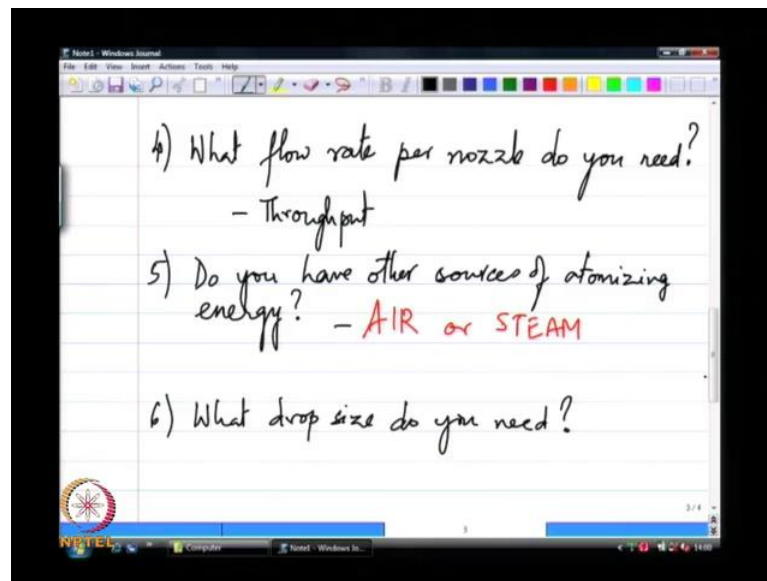 Note1 - Windows Journal
File Edit View Insert Actions Tools Help
4) What flow rate per nozzle do you need?
- Throughput
5) Do you have other sources of atomizing
energy? - AIR or STEAM
6) What drop size do you need?
3 / 4
3
NPTEL
Computer
Note1 - Windows Jo...
14:00